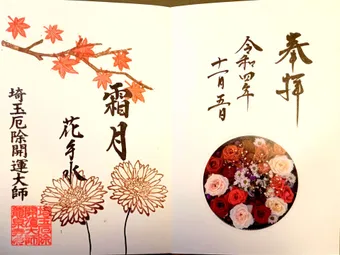 奉拝
令和四年
十一月五日
霜月
花手水
埼玉厄除開運大師